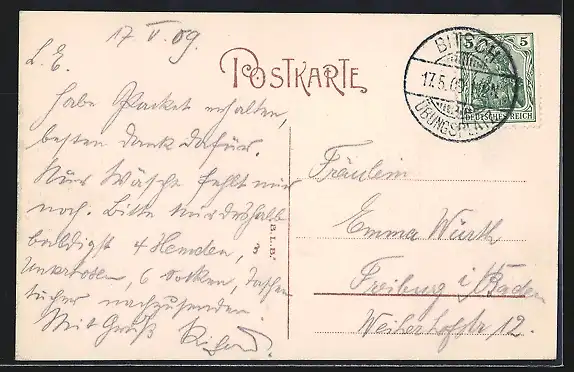 17 V. 09.
L. E.
POSTKARTE
BITSCH
17.5.09
ÜBUNGSPLATZ
5 5
DEUTSCHES REICH
habe Packet erhalten,
besten Dank dafür.
Nur Wäsche fehlt mir
noch. Bitte mir deshalb
baldigst 4 Hemden, 3
Unterhosen, 6 Socken, Taschen
tücher nachzusenden.
Mit Gruß Richard.
B. L. B.
Fräulein
Emma Würth
Freiburg i/Baden
Weiherhofstr, 12.